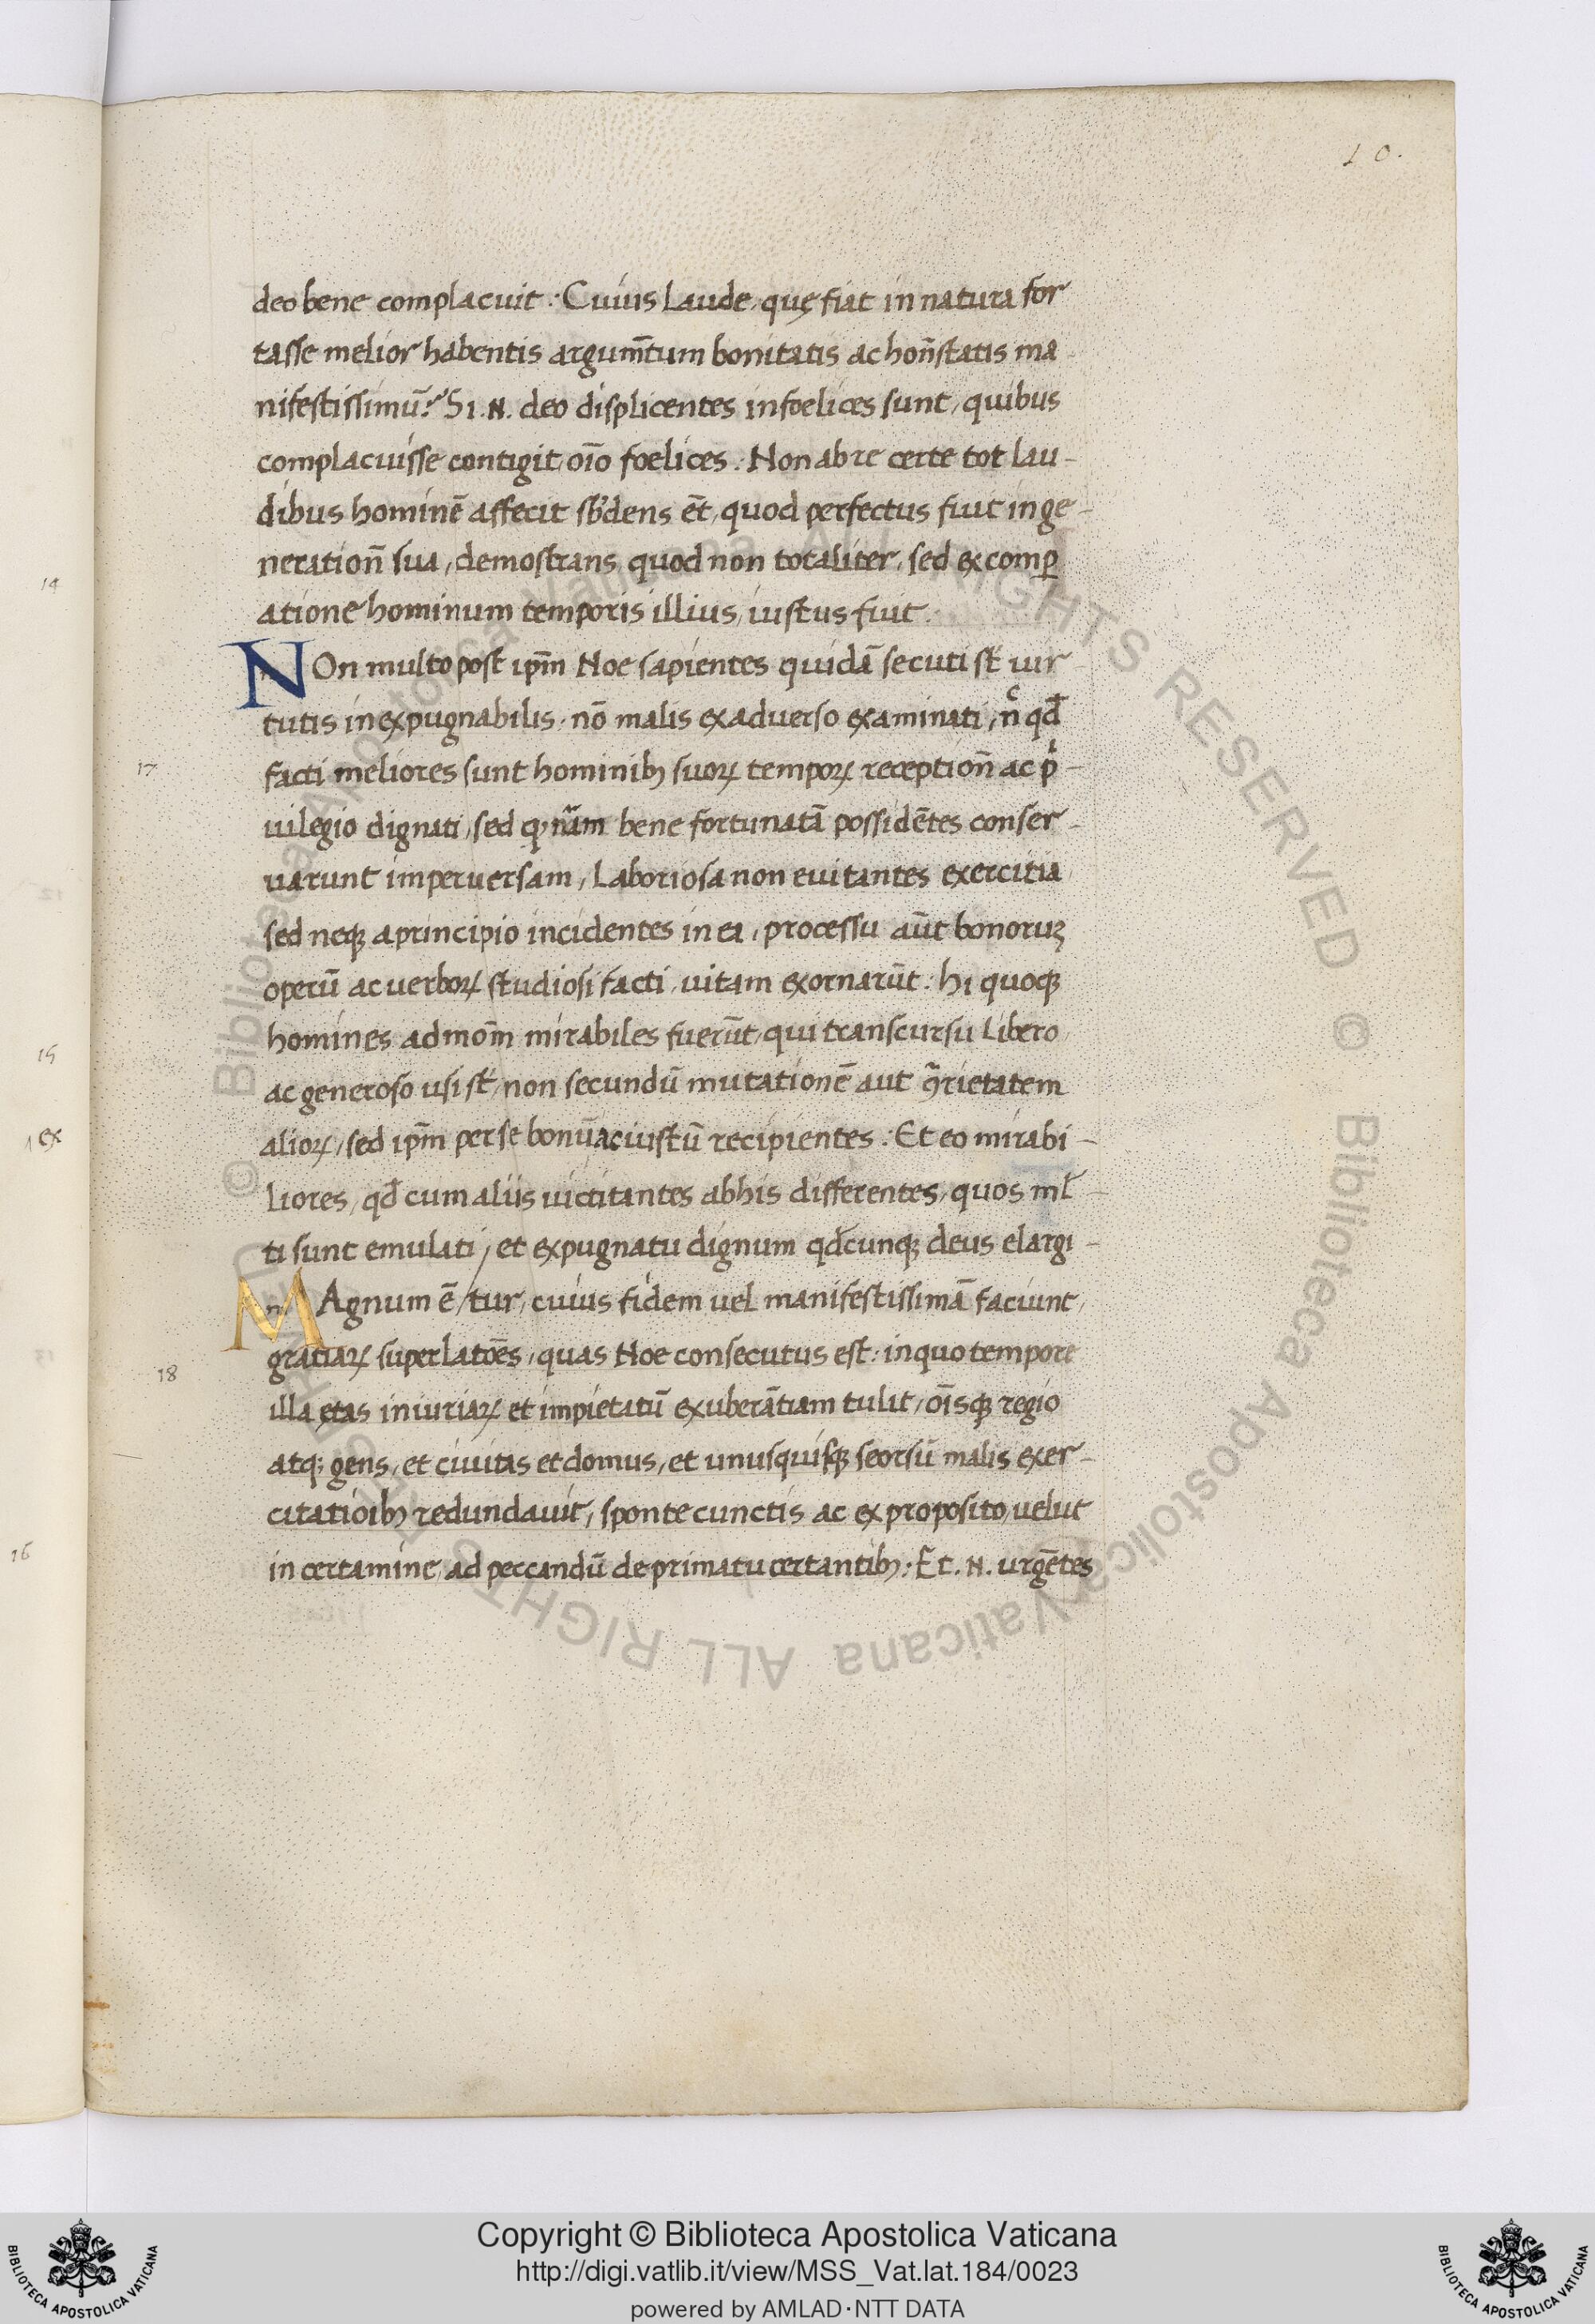 10.
deo bene complacuit: Cuius laude, quę fiat in natura for
tasse melior habentis argum̄tum bonitatis ac hon̄statis ma
nifestissimū? Si .N. deo displicentes infoelices sunt, quibus
complacuisse contigit, oı̄o foelices. Non ab re certe tot lau-
dibus hominē affecit sb'dens ēt, quod perfectus fuit in ge-
neration̄ sua, demostrans quod non totaliter, sed ex comꝑ
atione hominum temporis illius, iustus fuit.
14
NOn multo post ip̄m Noe sapientes quidā secuti st̄ uir
tutis inexpugnabilis, nō malis ex aduerso examinati, nͨ qđ
17 facti meliores sunt hominibꝫ suoꝝ tempoꝝ reception̄ ac pͥ-
uilegio dignati, sed qꝫ nām bene fortunatā possidētes conser-
uarunt imperuersam, laboriosa non euitantes exercitia
sed neqꝫ a principio incidentes in ea, processu aūt bonoruꝫ
operū ac uerboꝝ studiosi facti, uitam exornarūt: hi quoqꝫ
homines admōm mirabiles fuerūt, qui transcursu libero
15
ac generoso usi st̄, non secundū mutationē aut ꝯ̄rietatem
ex
alioꝝ, sed ip̄m per se bonū ac iustū recipientes: Et eo mirabi-
liores, qđ cum aliis uictitantes ab his differentes, quos ml̄-
ti sunt emulati, et expugnatu dignum qđcunqꝫ deus elargi-
MAgnum ē / tur, cuius fidem uel manifestissimā faciunt,
18 gratiaꝝ superlatōes, quas Noe consecutus est: in quo tempore
illa ętas iniuriaꝝ et impietatū exuberātiam tulit, oı̄sqꝫ regio
atqꝫ gens, et ciuitas et domus, et unusquisqꝫ seorsū malis exer-
citatioibꝫ redundauit, sponte cunctis ac ex proposito, uelut
16
in certamine, ad peccandū de primatu certantibꝫ: Et .N. urgētes
© Biblioteca Apostolica Vaticana ALL RIGHTS RESERVED
© Biblioteca Apostolica Vaticana ALL RIGHTS RESERVED
Copyright © Biblioteca Apostolica Vaticana
http://digi.vatlib.it/view/MSS_Vat.lat.184/0023
powered by AMLAD·NTT DATA
BIBLIOTECA APOSTOLICA VATICANA
BIBLIOTECA APOSTOLICA VATICANA